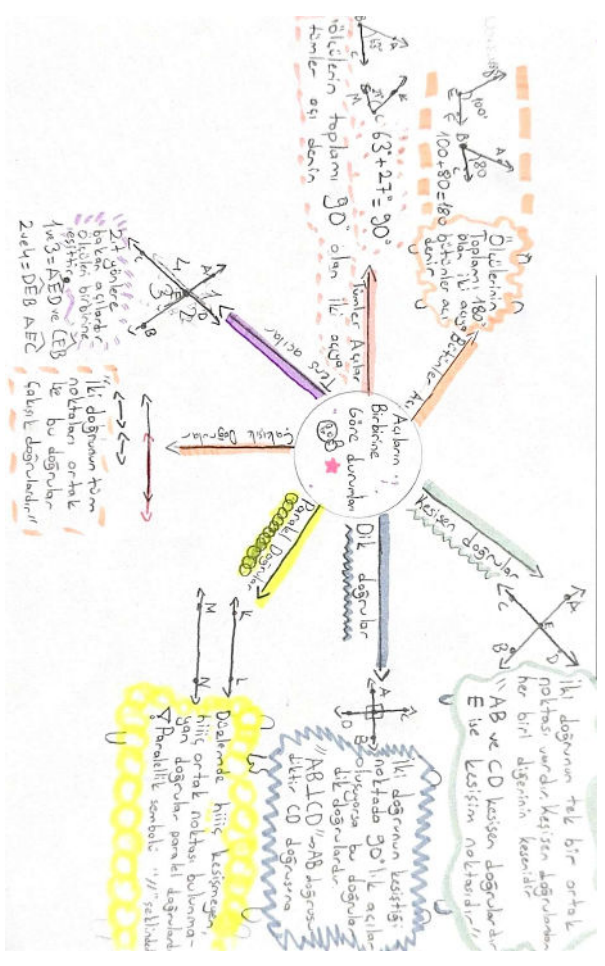 Açıların
Birbirine
Göre durumları
Bütünler Açı
"Ölçülerinin
Toplamı 180°
olan iki açıya
bütünler açı
denir"
100+80=180
100°
E
F
B
A
C
80
Tümler Açılar
"ölçülerin toplamı 90° olan iki açıya
tümler açı denir
63°+27°=90°
B
A
C
63°
M
K
L
27°
Ters
açılar
A
D
E
C
B
1
2
3
4
"Zıt yönlere
bakan açılardır
ölçüleri birbirine
eşittir
1 ve 3 = AED ve CEB
2 ve 4 = DEB AEC
Çakışık Doğrular
"İki doğrunun tüm
noktaları ortak
ise bu doğrular
Çakışık doğrulardır"
Paralel Doğrular
K
L
M
N
Düzlemde hiiiç kesişmeyen,
hiiiç ortak noktası bulunma-
yan doğrular paralel doğrulard
Paralellik sembolü "//" şeklinded
Dik doğrular
A
B
C
D
İki doğrunun kesiştiği
noktada 90°lik açılar
oluşuyorsa bu doğrular
dik doğrulardır.
"AB⊥CD"→AB doğrusu
diktir CD doğrusuna
Kesişen doğrular
A
D
E
C
B
İki doğrunun tek bir ortak
noktası vardır. Kesişen doğrulardan
her biri diğerinin kesenidir
"AB ve CD kesişen doğrulardır
E ise kesişim noktasıdır"